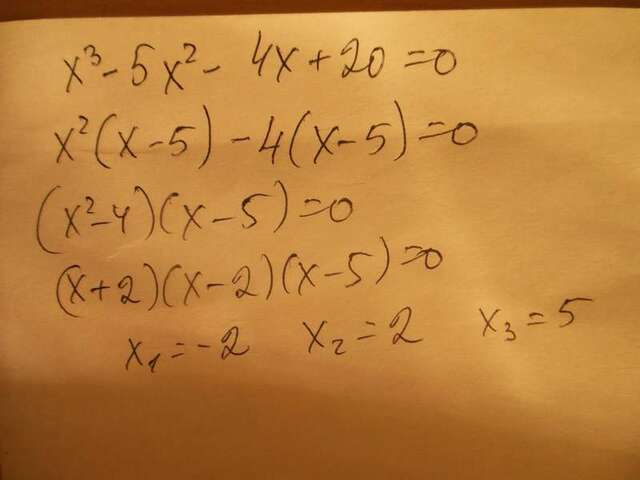 x³ - 5x² - 4x + 20 = 0
x²(x - 5) - 4(x - 5) = 0
(x² - 4)(x - 5) = 0
(x + 2)(x - 2)(x - 5) = 0
x₁ = -2 x₂ = 2 x₃ = 5